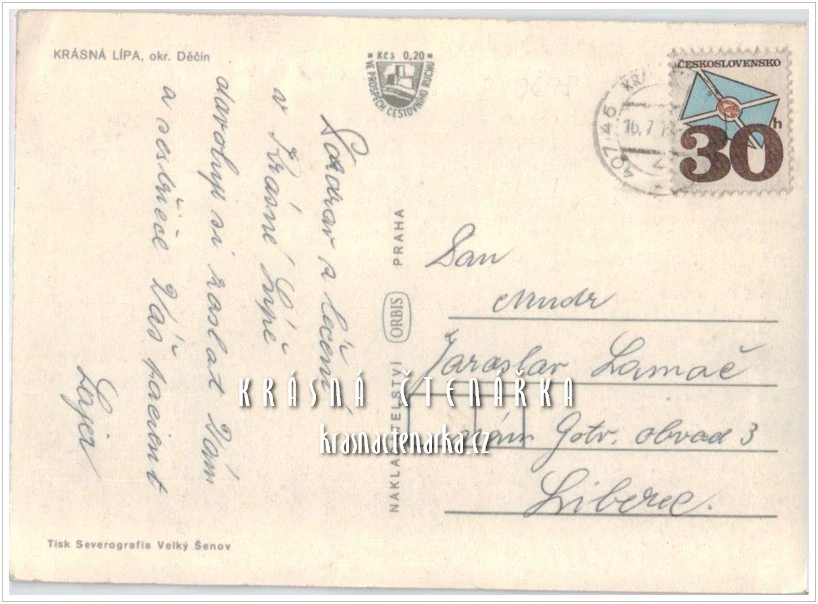 KRÁSNÁ LÍPA, okr. Děčín
Kčs 0,20
VE PROSPĚCH CESTOVNÍHO RUCHU
ČESKOSLOVENSKO
30h
407 46
KRÁ
16.7.7
Pozdrav z léčení
v Krásné Lípě
dovoluji si zaslat Vám
a sestřičce Váš pacient
NAKLADATELSTVÍ ORBIS PRAHA
Pan
Mudr
Jaroslav Lamač
nám Gotw. obvod 3
Liberec.
KRÁSNÁ ČTENÁŘKA
krasnactenarka.cz
Tisk Severografia Velký Šenov